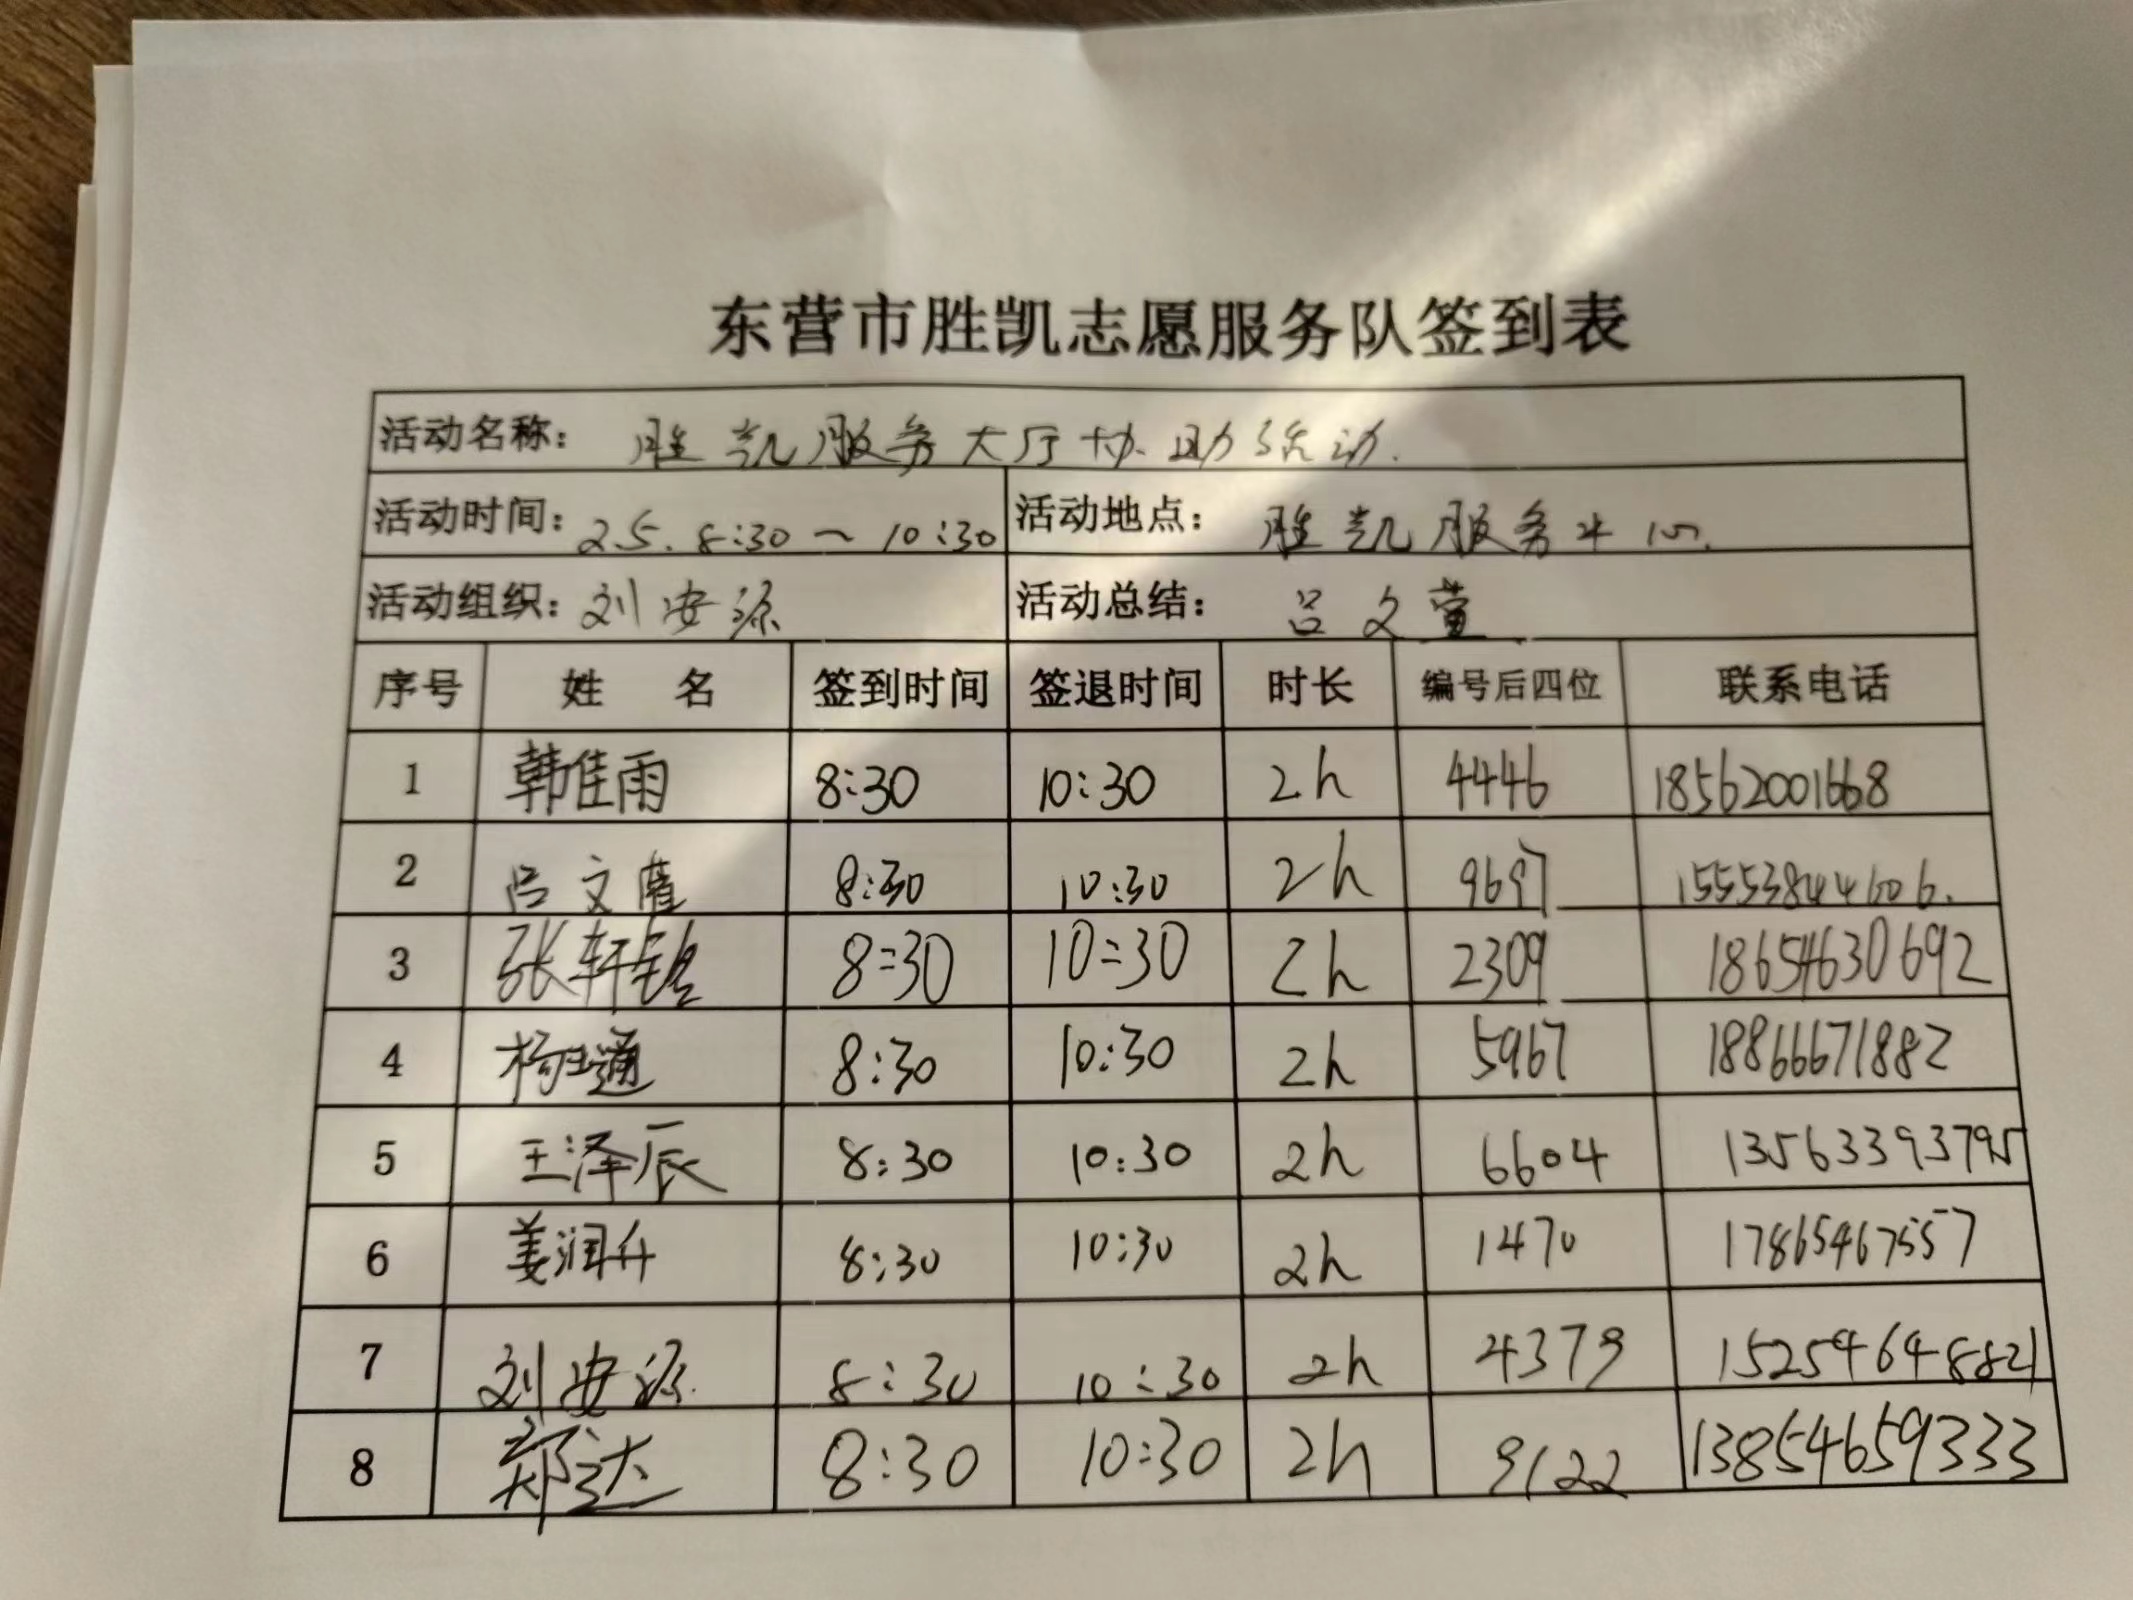 东营市胜凯志愿服务队签到表
活动名称: 胜凯服务大厅协助活动.
活动时间: 2.5. 8:30～10:30 活动地点: 胜凯服务中心.
活动组织: 刘安源 活动总结: 吕文萱
序号 姓 名 签到时间 签退时间 时长 编号后四位 联系电话
1 韩佳雨 8:30 10:30 2h 4446 18562001668
2 吕文萱 8:30 10:30 2h 9697 15553844606.
3 张轩铭 8:30 10:30 2h 2309 18654630692
4 杨通 8:30 10:30 2h 5967 18866671882
5 王泽辰 8:30 10:30 2h 6604 13563393795
6 姜润升 8:30 10:30 2h 1470 17865467557
7 刘安源. 8:30 10:30 2h 4379 15254648821
8 郑达 8:30 10:30 2h 9122 13854659333